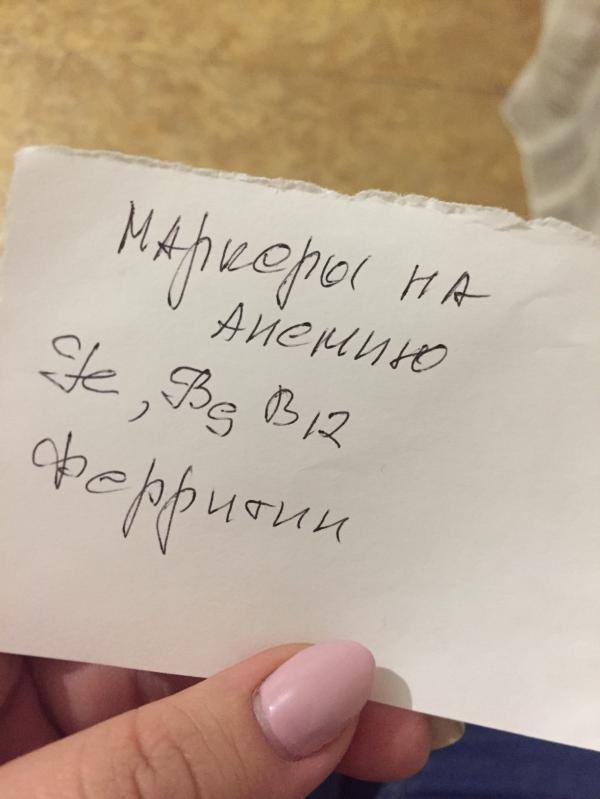 Маркеры на
анемию
Fe, B9 B12
Ферритин